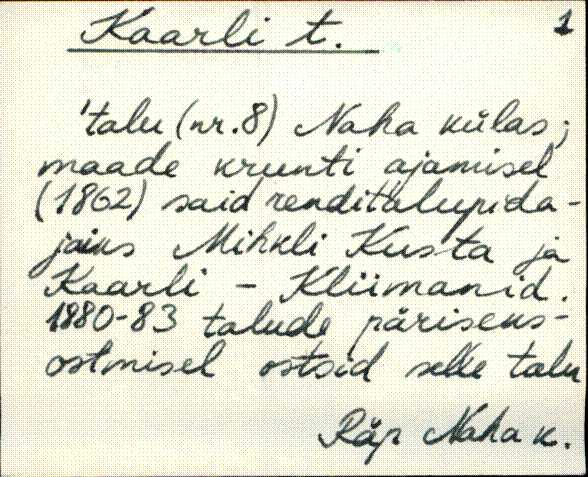 Kaarli t. 1
'talu (nr. 8) Naha külas;
maade krunti ajamisel
(1862) said renditalupida-
jaiks Mihkli Kusta ja
Kaarli - Kliimanid.
1880-83 talude päriseks-
ostmisel ostsid selle talu
Räp Naha k.